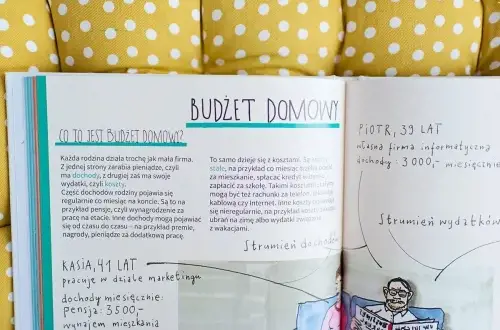 BUDŻET DOMOWY
CO TO JEST BUDŻET DOMOWY?
Każda rodzina działa trochę jak mała firma.
Z jednej strony zarabia pieniądze, czyli
ma dochody, z drugiej zaś ma swoje
wydatki, czyli koszty.
Część dochodów rodziny pojawia się
regularnie co miesiąc na koncie. Są to na
przykład pensje, czyli wynagrodzenie za
pracę na etacie. Inne dochody mogą pojawiać
się od czasu do czasu – na przykład premie,
nagrody, pieniądze za dodatkową pracę.
To samo dzieje się z kosztami. Są
stałe, na przykład co miesiąc trzeba
za mieszkanie, spłacać kredyt
zapłacić za szkołę. Takimi kosztami
mogą być też rachunki za telefon,
kablową czy internet. Inne koszty
się nieregularnie, na przykład
ubrań na zimę albo wydatki
z wakacjami.
Strumień dochodów
KASIA, 41 LAT
pracuje w dziale marketingu
dochody miesięcznie:
pensja: 3500,-
wynajem mieszkania
PIOTR, 39 LAT
własna firma informatyczna
dochody: 3000,- miesięcznie
Strumień wydatków